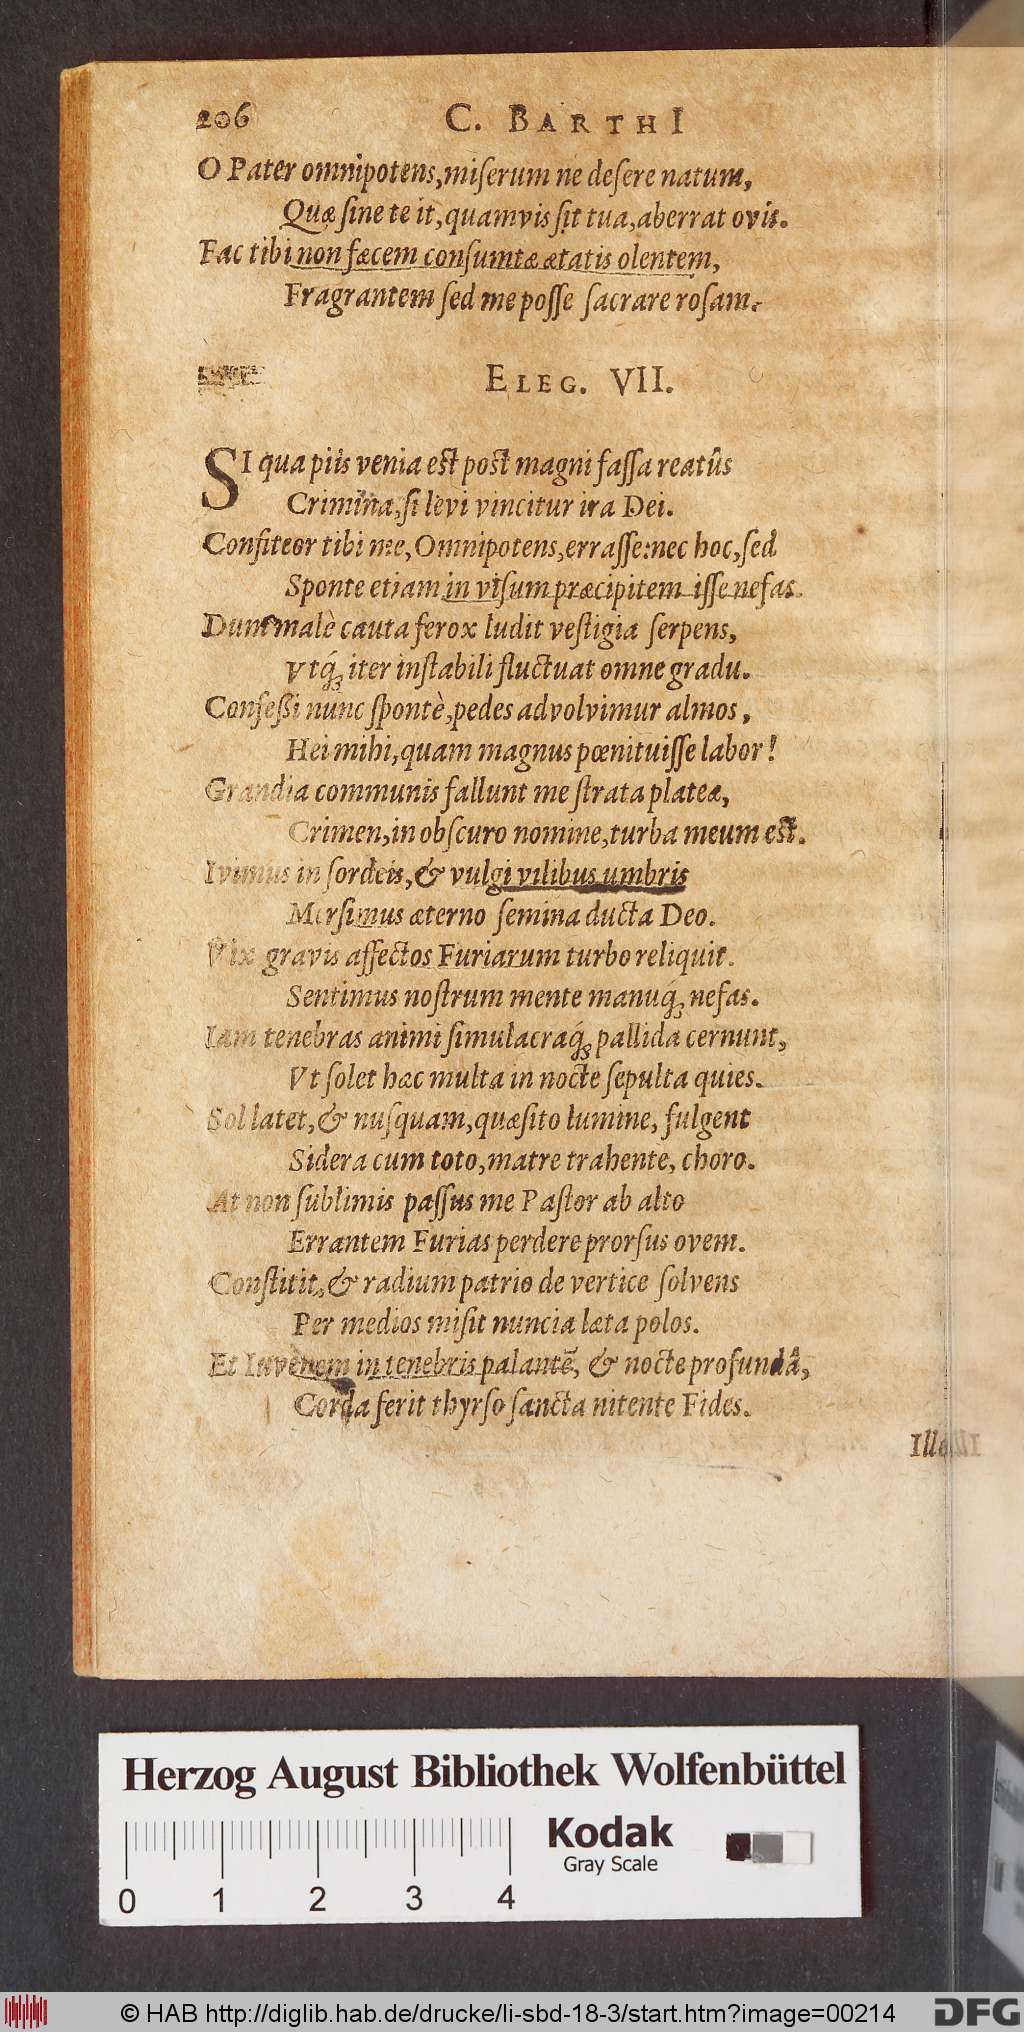 206 C. BARTHI
O Pater omnipotens, miserum ne desere natum,
Quæ sine te it, quamvis sit tua, aberrat ovis.
Fac tibi non fæcem consumtæ ætatis olentem,
Fragrantem sed me posse sacrare rosam.
ELEG. VII.
SI qua piis venia est post magni fassa reatûs
Crimina, si levi vincitur ira Dei.
Confiteor tibi me, Omnipotens, errasse: nec hoc, sed
Sponte etiam in visum præcipitem isse nefas.
Dum malè cauta ferox ludit vestigia serpens,
Vtq́; iter instabili fluctuat omne gradu.
Confeßi nunc spontè, pedes advolvimur almos,
Hei mihi, quam magnus pœnituisse labor!
Grandia communis fallunt me strata plateæ,
Crimen, in obscuro nomine, turba meum est.
Ivimus in sordeis, & vulgi vilibus umbris
Mersimus æterno semina ducta Deo.
Vix gravis affectos Furiarum turbo reliquit.
Sentimus nostrum mente manuq́; nefas.
Iam tenebras animi simulacraq́; pallida cernunt,
Vt solet hac multa in nocte sepulta quies.
Sol latet, & nusquam, quæsito lumine, fulgent
Sidera cum toto, matre trahente, choro.
At non sublimis passus me Pastor ab alto
Errantem Furias perdere prorsus ovem.
Constitit, & radium patrio de vertice solvens
Per medios misit nuncia læta polos.
Et Iuvenem in tenebris palantē, & nocte profundâ,
Corda ferit thyrso sancta nitente Fides.
Herzog August Bibliothek Wolfenbüttel
Kodak
Gray Scale
0 1 2 3 4
© HAB http://diglib.hab.de/drucke/li-sbd-18-3/start.htm?image=00214
DFG